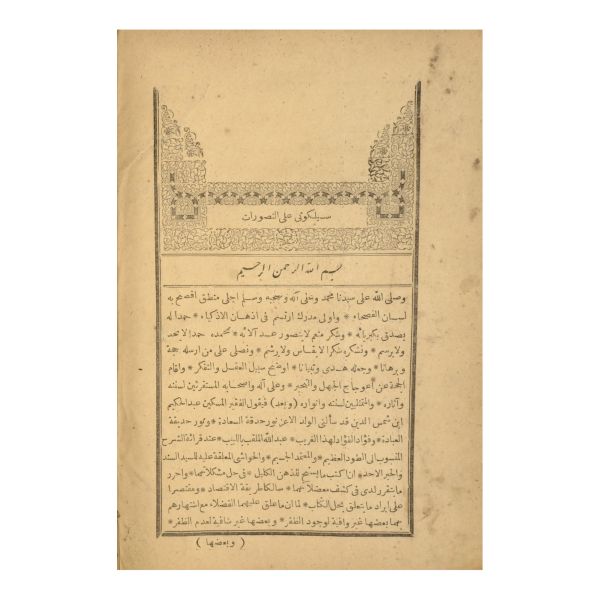 سيلكوتى على التصورات
بسم الله الرحمن الرحيم
وصلى الله على سيدنا محمد وعلى آله وصحبه وسلم اجلى منطق افصح به
لسان الفصحاء * واولى مدرك ارتسم فى اذهان الاذكياء * حمدا له
يصدق بكبريائه * وشكر منعم لايتصور عد آلائه * نحمده حمدا لايحد
ولايرسم * ونشكره شكرا لايقاس ولايرسم * ونصلى على من ارسله حجة
وبرهانا * وجعله هدى وتبيانا * اوضح سبيل العقل والتفكر * واقام
الحجة عن اعوجاج الجهل والتحير * وعلى آله واصحابه المستقرئين لسننه
وآثاره * والمقتبسين لسنته وانواره (وبعد) فيقول الفقير المسكين عبدالحكيم
ابن شمس الدين قد سألنى الولد الاعز نور حدقة السعادة * ونور حديقة
العبادة * وفؤاد الفؤاد لهذا الغريب * عبدالله الملقب باللبيب * عند قرائة الشرح
المنسوب الى الطود العظيم * والمعتمد الجسيم * والحواشى المعلقة عليه للسيد السند
والحبر الاحد * ان اكتب ما يسنح للذهن الكليل * فى حل مشكلاتهما * واحرر
مايتقرر لدى فى كشف معضلاتهما * سالكا طريقة الاقتصاد * ومقتصرا
على ايراد مايتعلق بحل الكتاب * لما ان ماعلق عليهما الفضلاء مع اشتهارهم
بعضها غير وافية لوجود الظفر * وبعضها غير شافية لعدم الظفر *
( وبعضها )